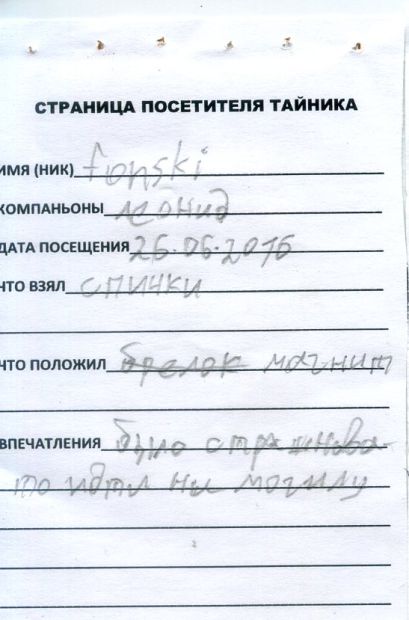 СТРАНИЦА ПОСЕТИТЕЛЯ ТАЙНИКА
ИМЯ (НИК) fonski
КОМПАНЬОНЫ леонид
ДАТА ПОСЕЩЕНИЯ 26.06.2016
ЧТО ВЗЯЛ спички
ЧТО ПОЛОЖИЛ брелок магнит
ВПЕЧАТЛЕНИЯ было страшнова-
то идти на могилу